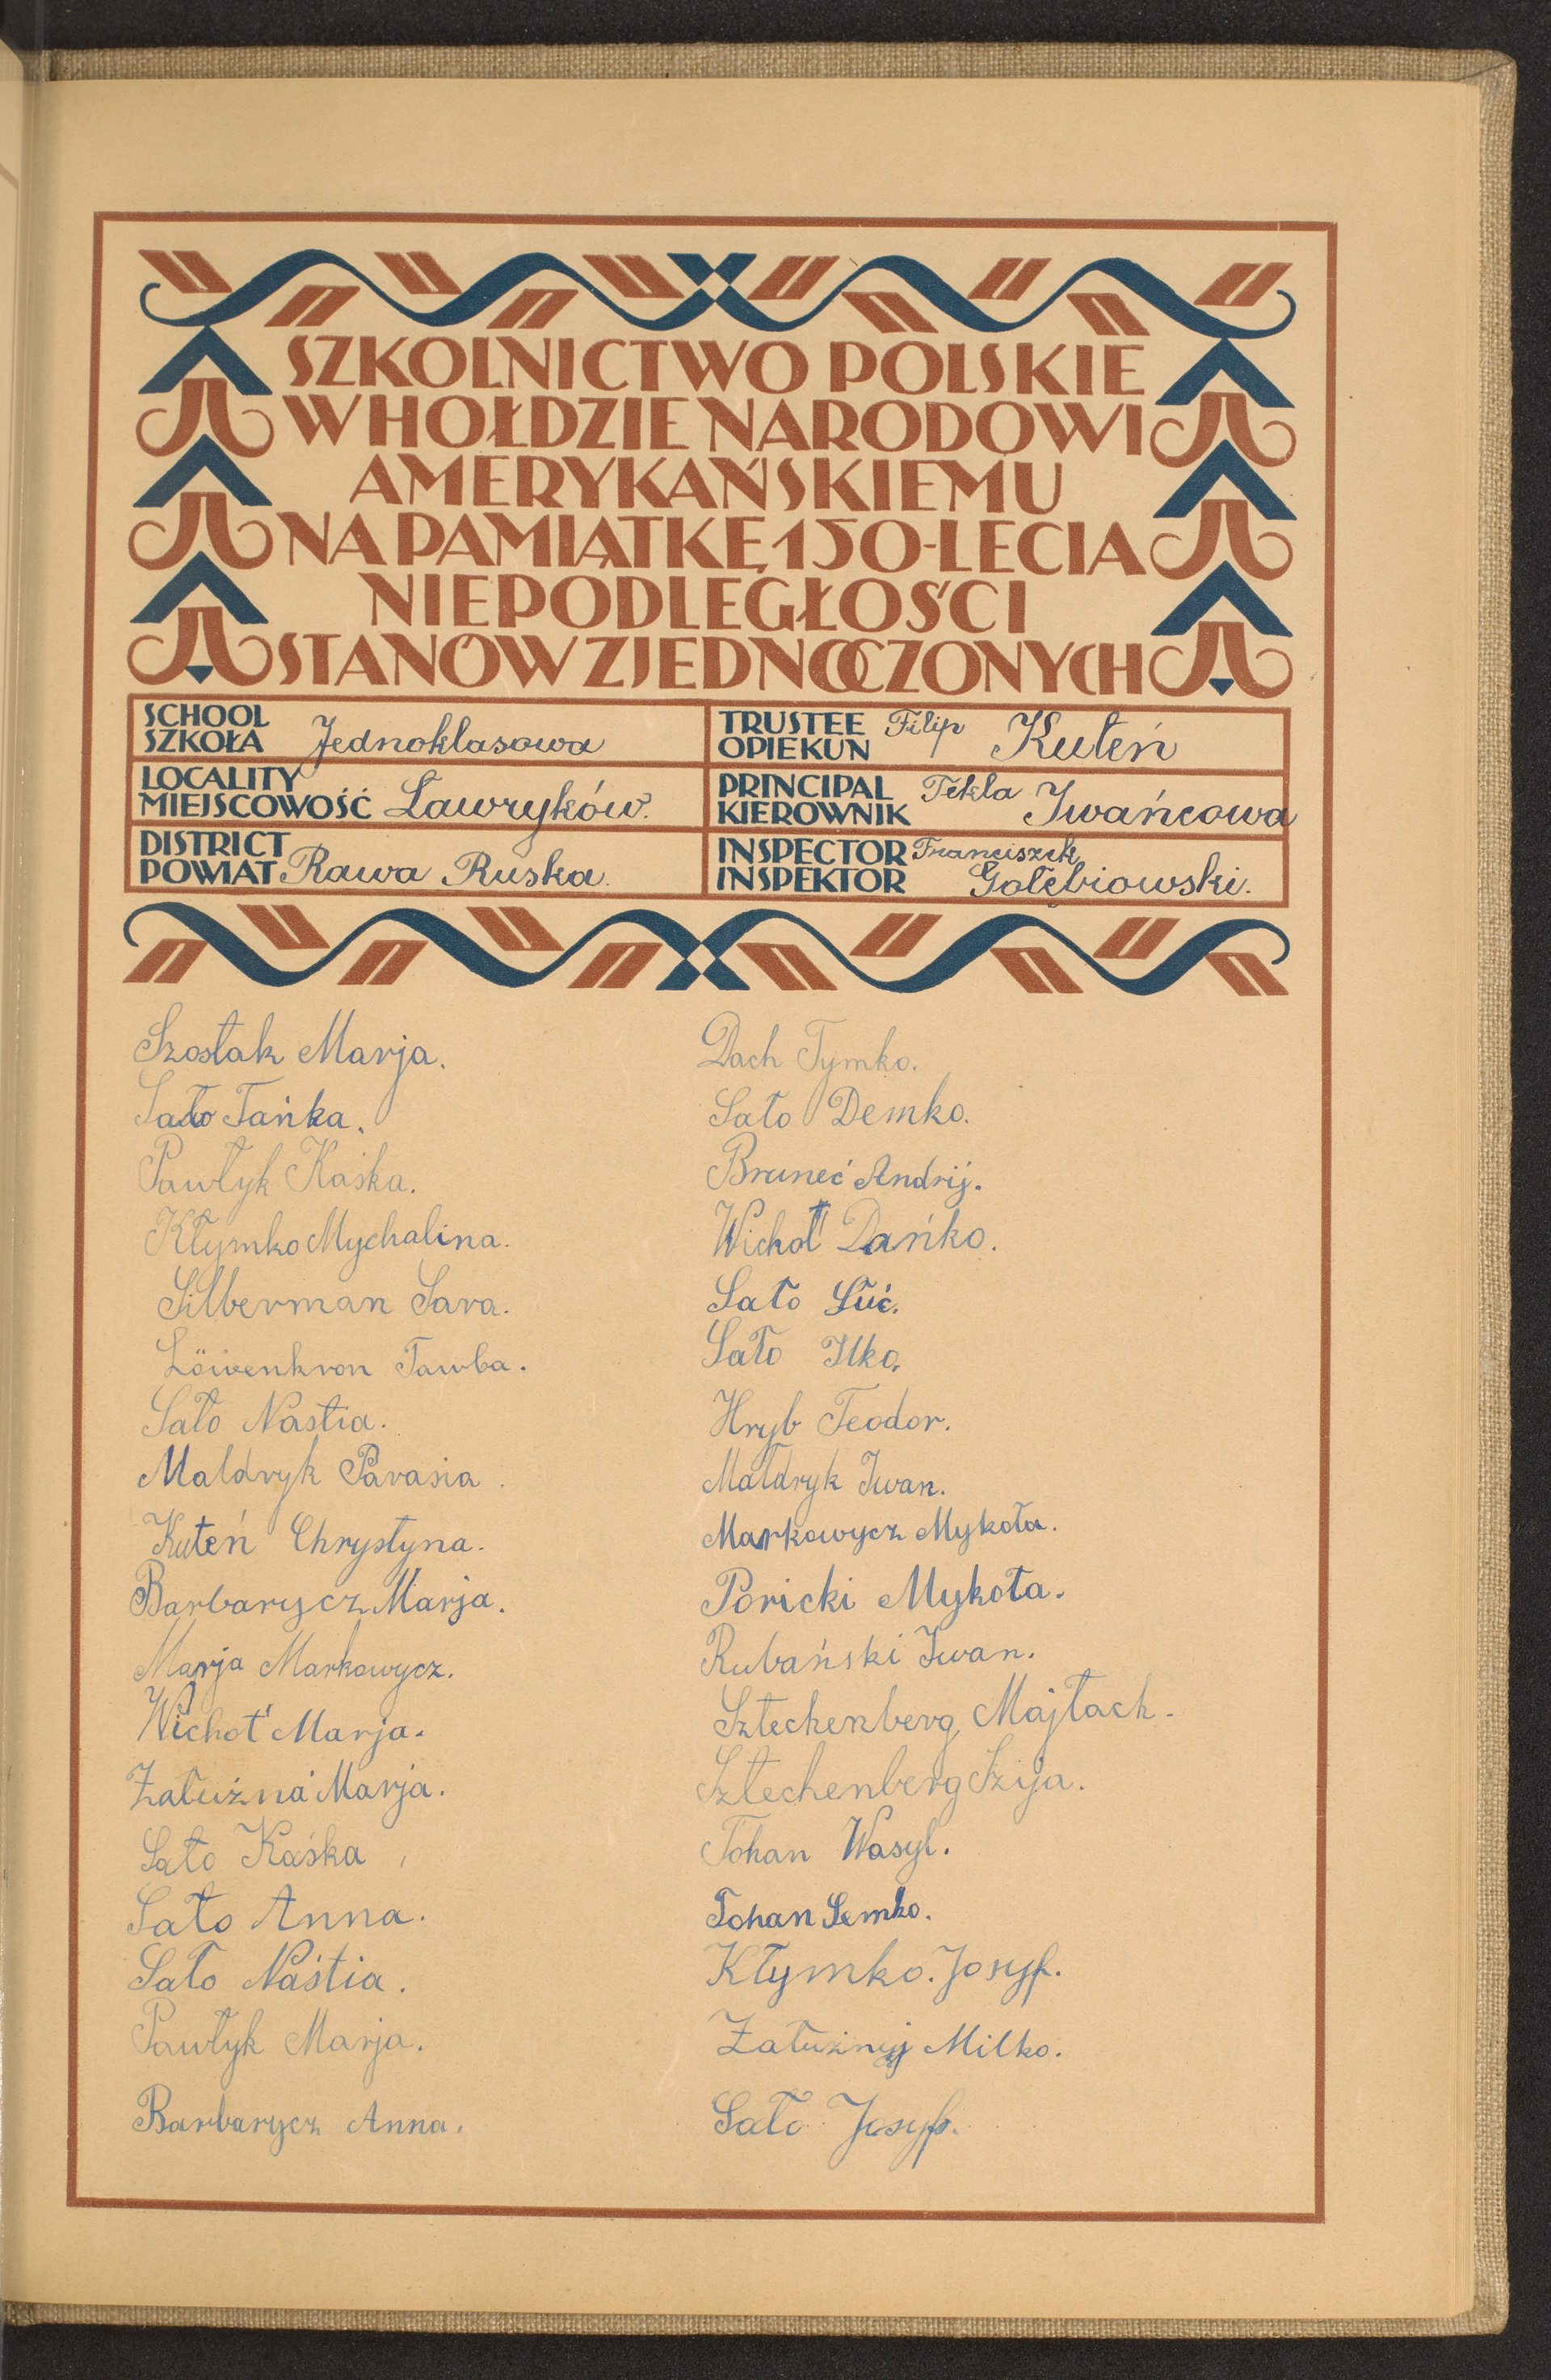 SZKOLNICTWO POLSKIE
W HOŁDZIE NARODOWI
AMERYKAŃSKIEMU
NA PAMIĄTKĘ 150-LECIA
NIEPODLEGŁOŚCI
STANÓW ZJEDNOCZONYCH
SCHOOL
SZKOŁA Jednoklasowa
TRUSTEE
OPIEKUN Filip Kuteń
LOCALITY
MIEJSCOWOŚĆ Ławryków.
PRINCIPAL
KIEROWNIK Tekla Iwańcowa
DISTRICT
POWIAT Rawa Ruska.
INSPECTOR
INSPEKTOR Franciszek Gołębiowski.
Szostak Marja.
Sało Tańka.
Pawłyk Kaśka.
Kłymko Mychalina.
Silberman Sara.
Löwenkron Tawba.
Sało Nastia.
Małdryk Parasia.
Kuteń Chrystyna.
Barbarycz Marja.
Marja Markowycz.
Wichot' Marja.
Załużna Marja.
Sało Kaśka
Sało Anna.
Sało Naśtia.
Pawłyk Marja.
Barbarycz Anna.
Dach Tymko.
Sało Demko.
Bruneć Andrij.
Wichot' Dańko.
Sało Łuć.
Sało Ilko.
Hryb Teodor.
Małdryk Iwan.
Markowycz Mykoła.
Poricki Mykoła.
Rubański Iwan.
Sztechenberg Majłach.
Sztechenberg Szija.
Tohan Wasyl.
Tohan Semko.
Kłymko. Josyf.
Załużnyj Milko.
Sało Josyf.